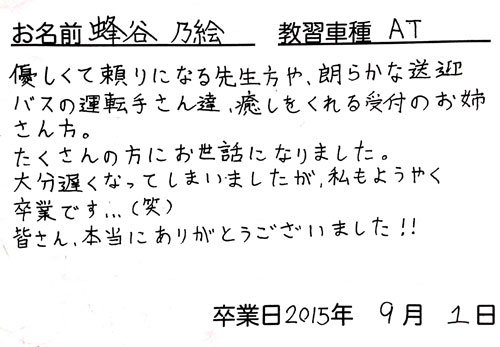 お名前 蜂谷 乃絵 教習車種 AT
優しくて頼りになる先生方や、朗らかな送迎
バスの運転手さん達、癒しをくれる受付のお姉
さん方。
たくさんの方にお世話になりました。
大分遅くなってしまいましたが、私もようやく
卒業です...(笑)
皆さん、本当にありがとうございました!!
卒業日2015年 9月 1日